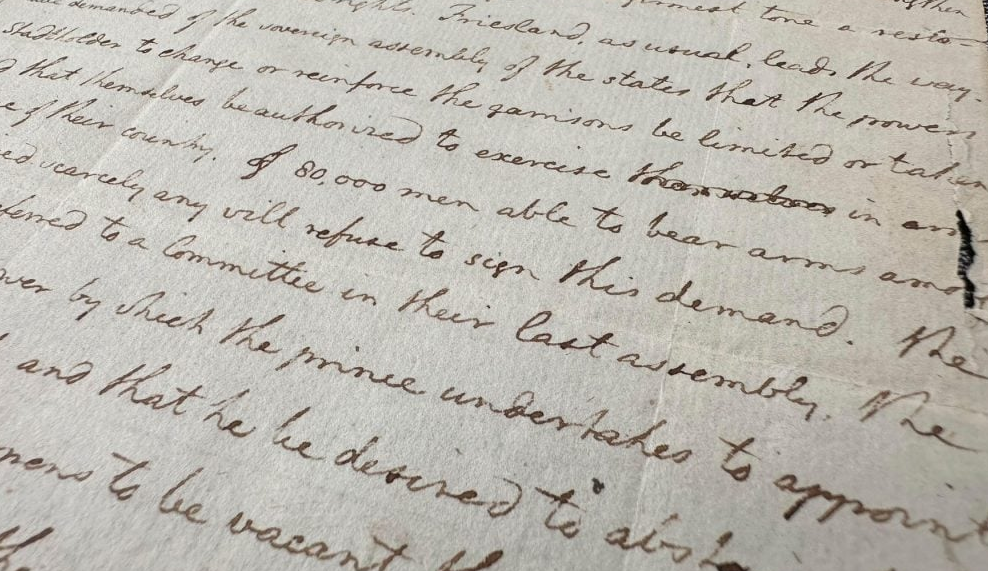 firmest tone a resto-
rights. Friesland, as usual, leads the way.
demanded of the sovereign assembly of the states that the powers
Stadtholder to change or reinforce the garrisons be limited or taken
that themselves be authorized to exercise in
of their country. Of 80,000 men able to bear arms
scarcely any will refuse to sign this demand. The
to a Committee in their last assembly. The
by which the prince undertakes to appoint
and that he be desired to
to be vacant